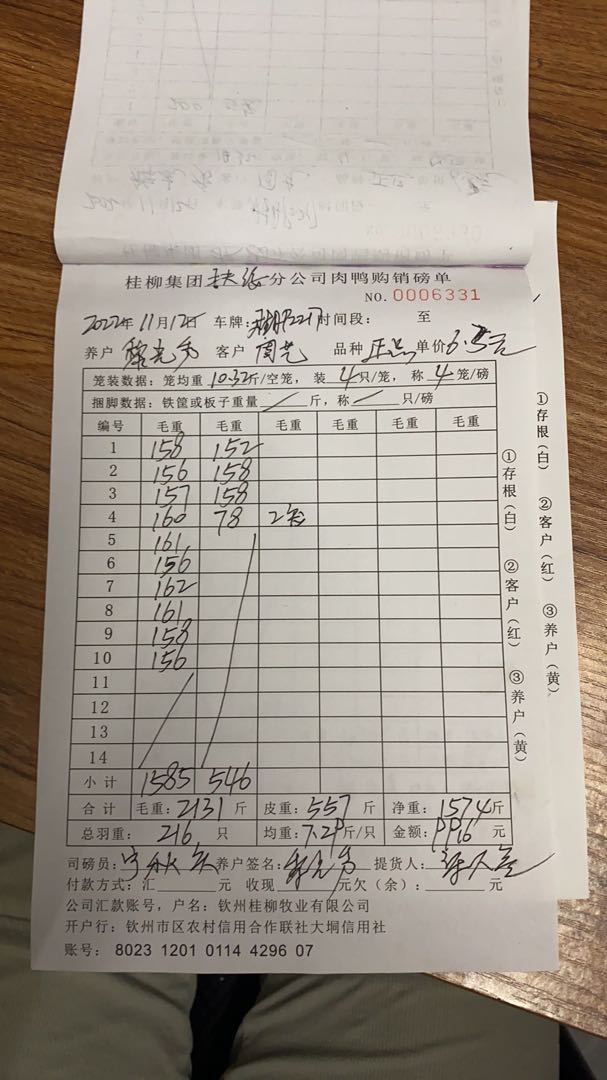 桂柳集团 分公司肉鸭购销磅单
NO.0006331
2022年11月12日 车牌: 时间段: 至
养户 客户 周艺 品种 正品 单价 6.3元
笼装数据:笼均重 10.32斤/空笼,装 4只/笼,称 4笼/磅
捆脚数据:铁筐或板子重量 / 斤,称 / 只/磅
编号 毛重 毛重 毛重 毛重 毛重 毛重
1 158 152
2 156 158
3 157 158
4 160 78 2笼
5 161
6 156
7 162
8 161
9 158
10 156
11
12
13
14
小计 1585 546
合计 毛重:2131斤 皮重:557斤 净重:1574斤
总羽重:216只 均重:7.29斤/只 金额:9916元
司磅员: 养户签名: 提货人:
付款方式:汇 元 收现 元欠(余): 元
公司汇款账号,户名:钦州桂柳牧业有限公司
开户行:钦州市区农村信用合作联社大垌信用社
账号: 8023 1201 0114 4296 07
①存根(白) ②客户(红) ③养户(黄)
①存根(白) ②客户(红) ③养户(黄)